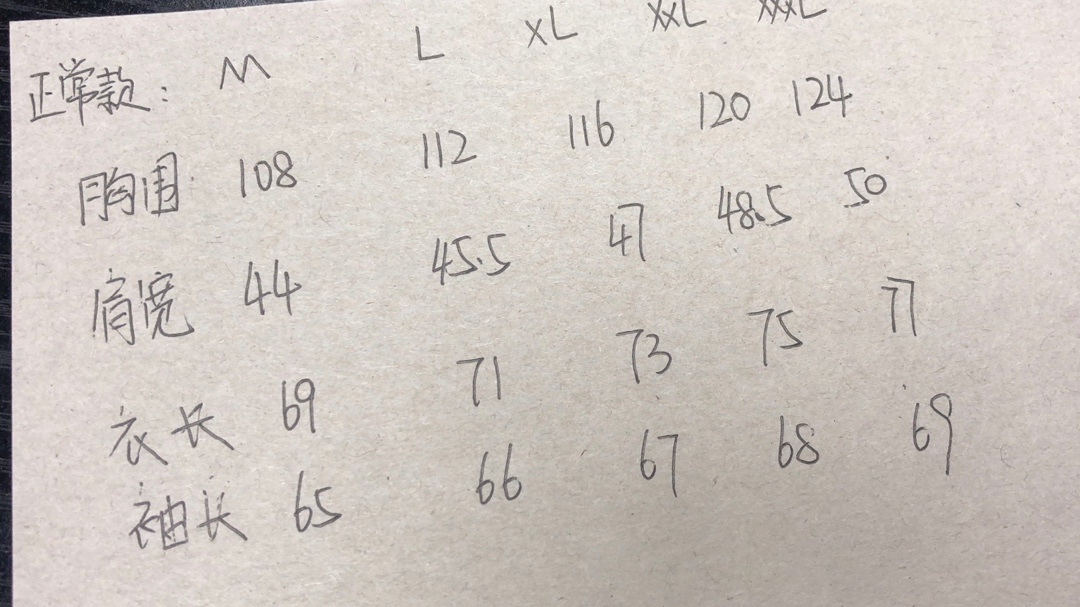 正常款: M L XL XXL XXXL
胸围 108 112 116 120 124
肩宽 44 45.5 47 48.5 50
衣长 69 71 73 75 77
袖长 65 66 67 68 69